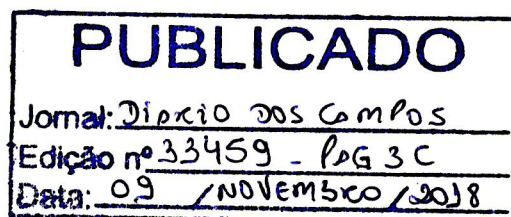 PUBLICADO
Jornal: Diário DOS CAMPOS
Edição nº 33459 - PÁG 3 C
Data: 09 / NOVEMBRO / 2018